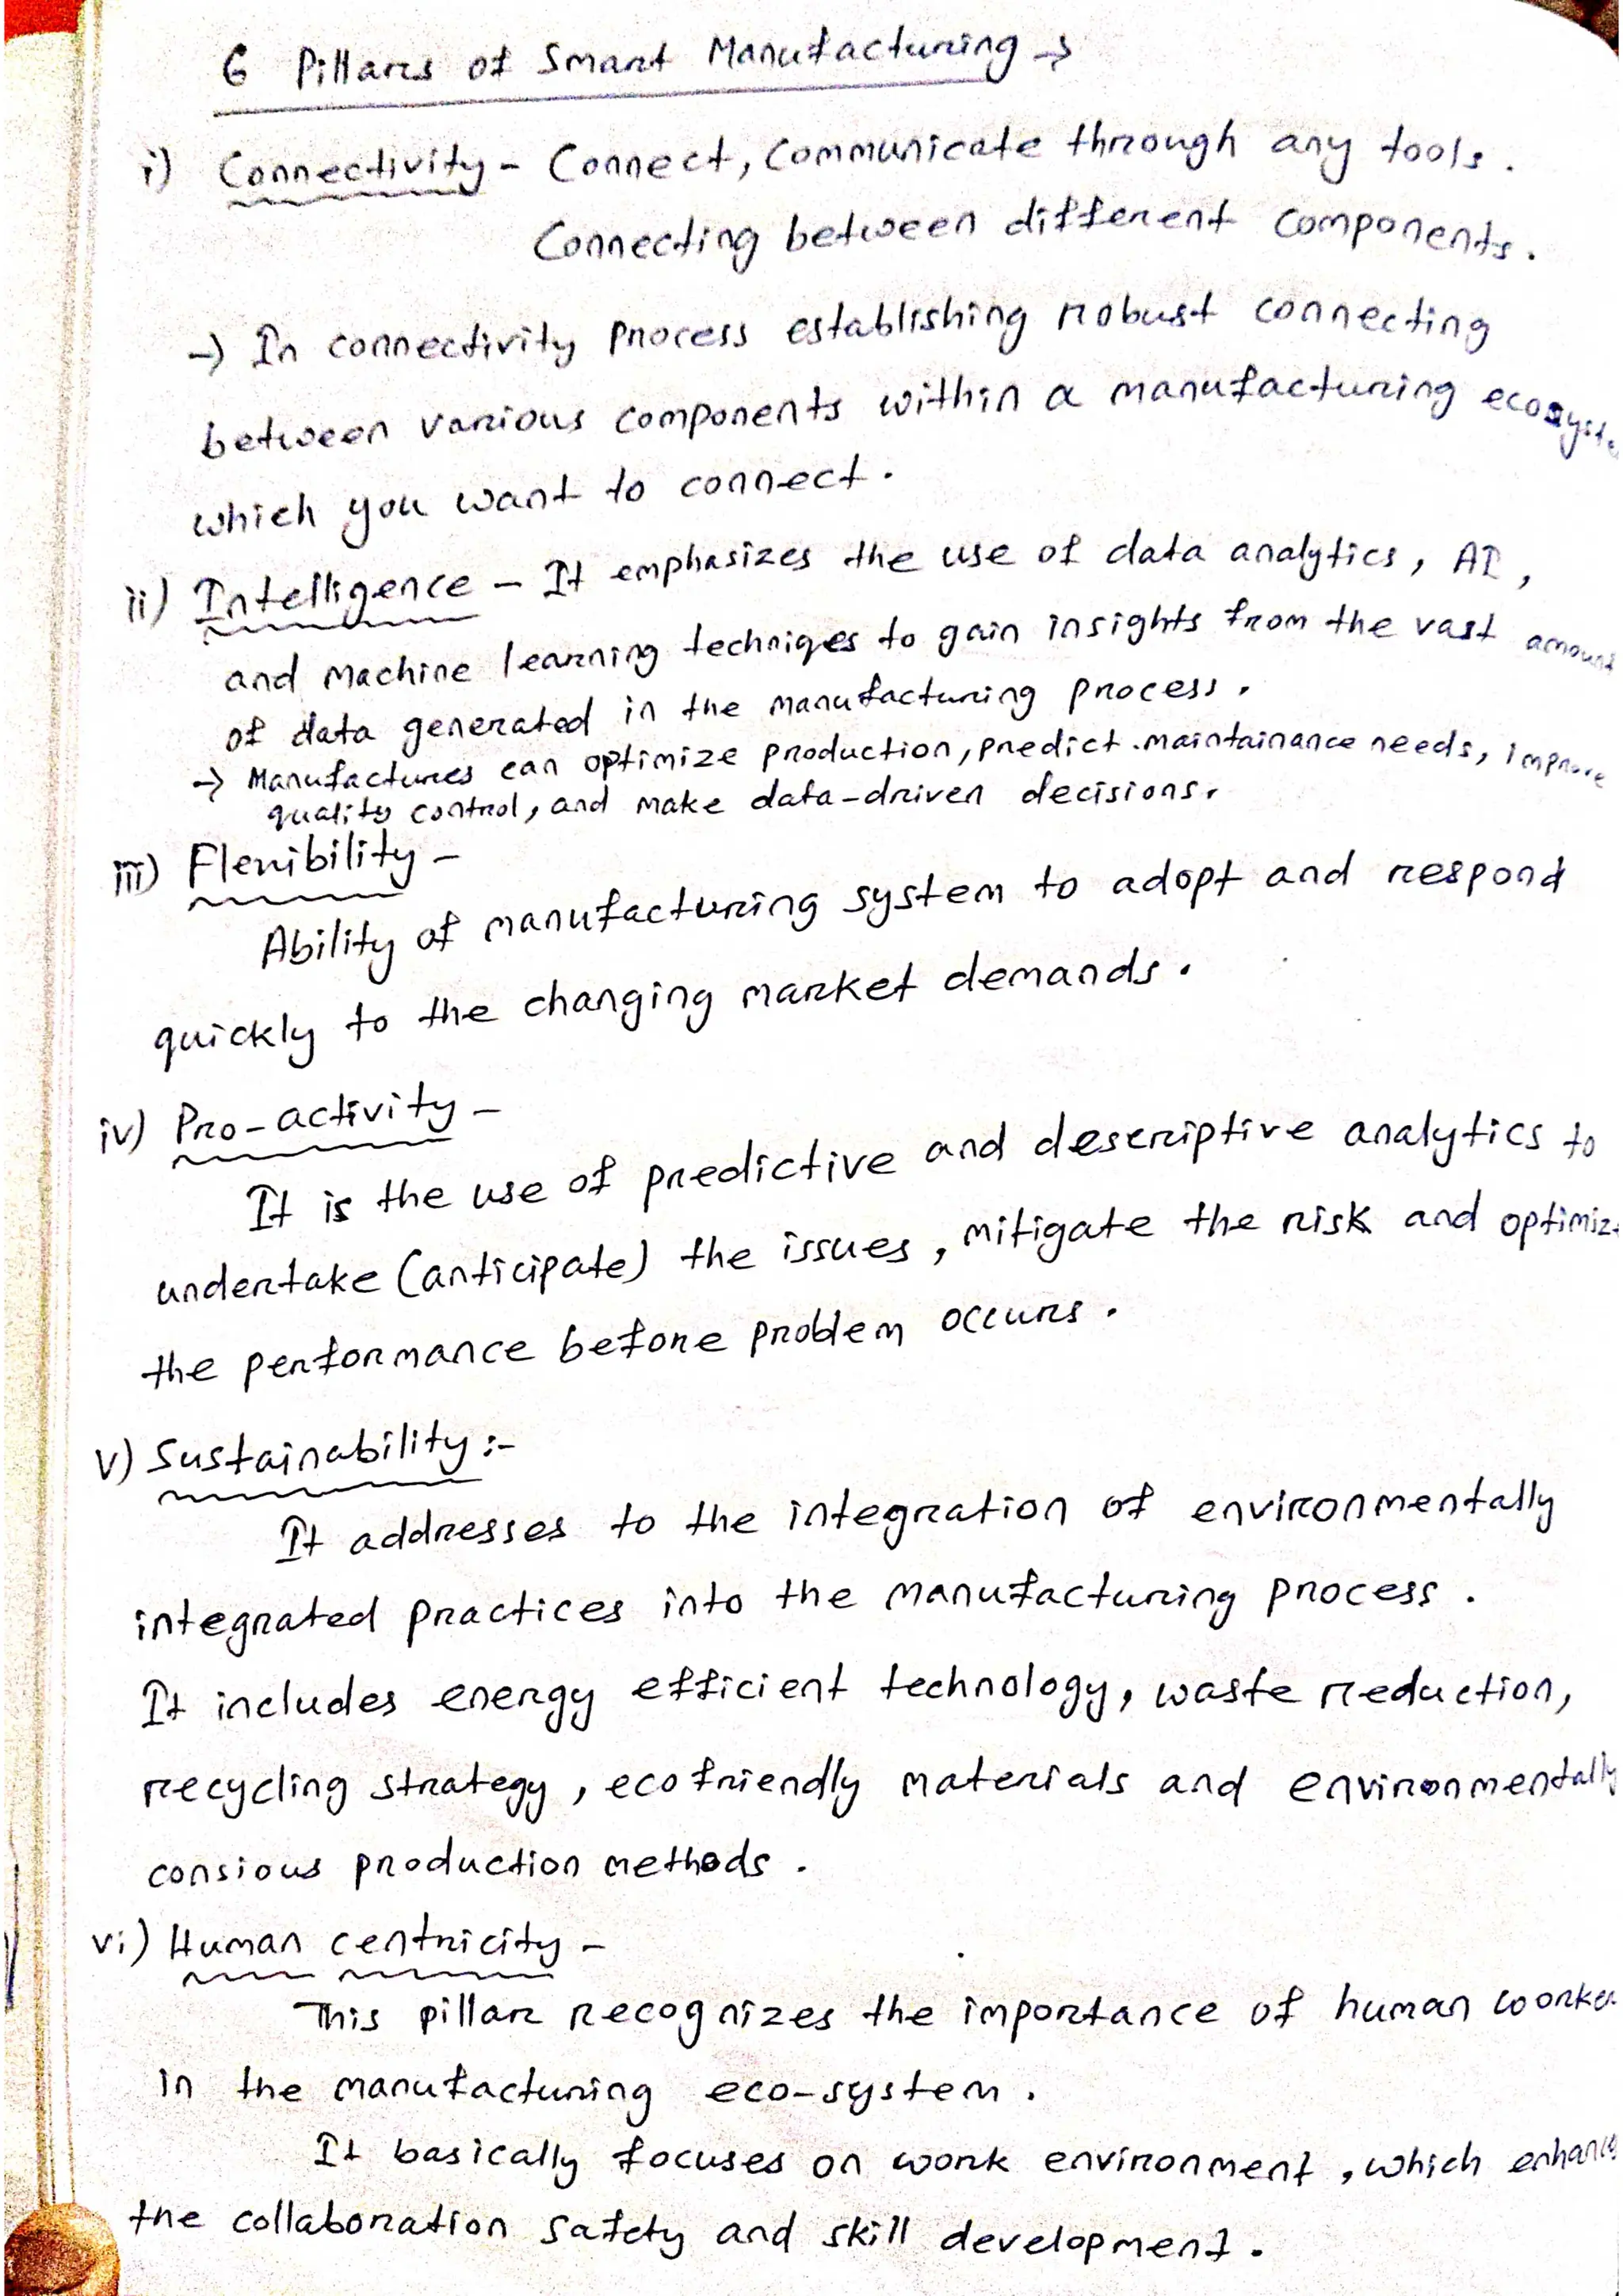 6 Pillars of Smart Manufacturing →
i) Connectivity - Connect, Communicate through any tools.
Connecting between different components.
→ In connectivity process establishing robust connecting
between various components within a manufacturing ecosyste
which you want to connect.
ii) Intelligence - It emphasizes the use of data analytics, AI,
and Machine learning techniqes to gain insights from the vast amount
of data generated in the manufacturing process.
→ Manufactures can optimize production, predict maintainance needs, improve
quality control, and make data-driven decisions.
iii) Flexibility -
Ability of manufacturing system to adopt and respond
quickly to the changing market demands.
iv) Pro-activity -
It is the use of predictive and descriptive analytics to
undertake (anticipate) the issues, mitigate the risk and optimiz
the performance before problem occurs.
v) Sustainability :-
It addresses to the integration of environmentally
integrated practices into the manufacturing process.
It includes energy efficient technology, waste reduction,
recycling strategy, ecofriendly materials and environmentally
consious production methods.
vi) Human centricity -
This pillar recognizes the importance of human worker
in the manufacturing eco-system.
It basically focuses on work environment, which enhance
the collaboration safety and skill development.